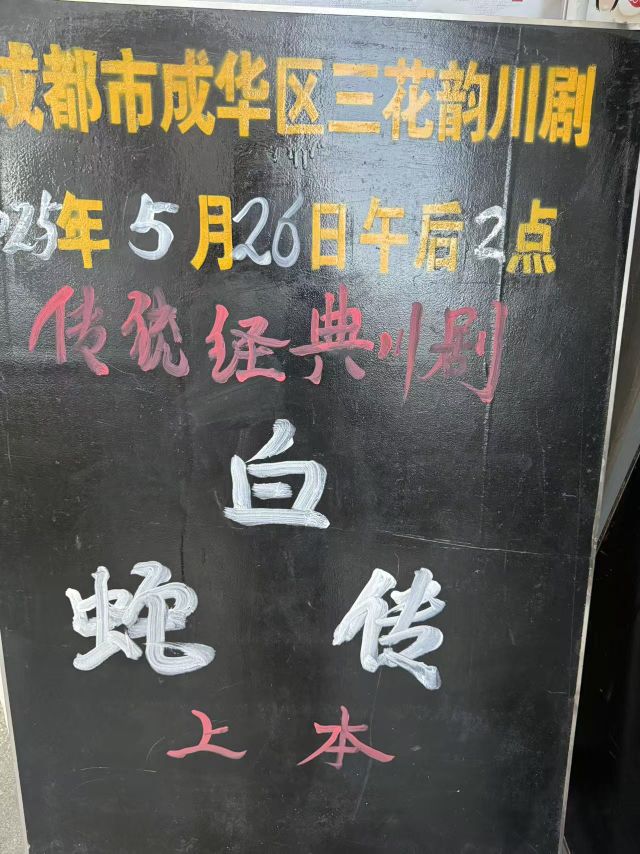 成都市成华区三花韵川剧
2025年5月26日午后2点
传统经典川剧
白
蛇传
上本